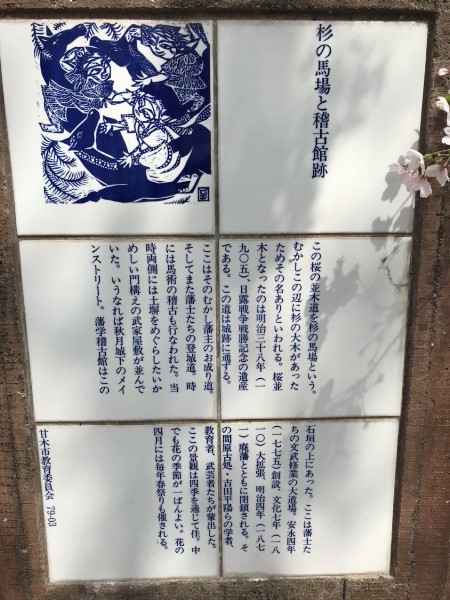 杉の馬場と稽古館跡
この桜の並木道を杉の馬場という。
むかしこの辺に杉の大木があった
ためその名ありといわれる。桜並
木となったのは明治三十八年(一
九〇五)、日露戦争戦勝記念の遺産
である。この道は城跡に通ずる。
ここはそのむかし藩主のお成り道。
そしてまた藩士たちの登城道。時
には馬術の稽古も行なわれた。当
時両側には土塀をめぐらしたいか
めしい門構えの武家屋敷が並んで
いた。いうなれば秋月城下のメイ
ンストリート。藩学稽古館はこの
石垣の上にあった。ここは藩士た
ちの文武修業の大道場。安永四年
(一七七五)創設、文化七年(一八
一〇)大拡張、明治四年(一八七
一)廃藩とともに閉鎖される。そ
の間原古処・吉田平陽らの学者、
教育者、武芸者たちが輩出した。
ここの景観は四季を通じて佳。中
でも花の季節が一ばんよい。花の
四月には毎年春祭りも催される。
甘木市教育委員会 79.03